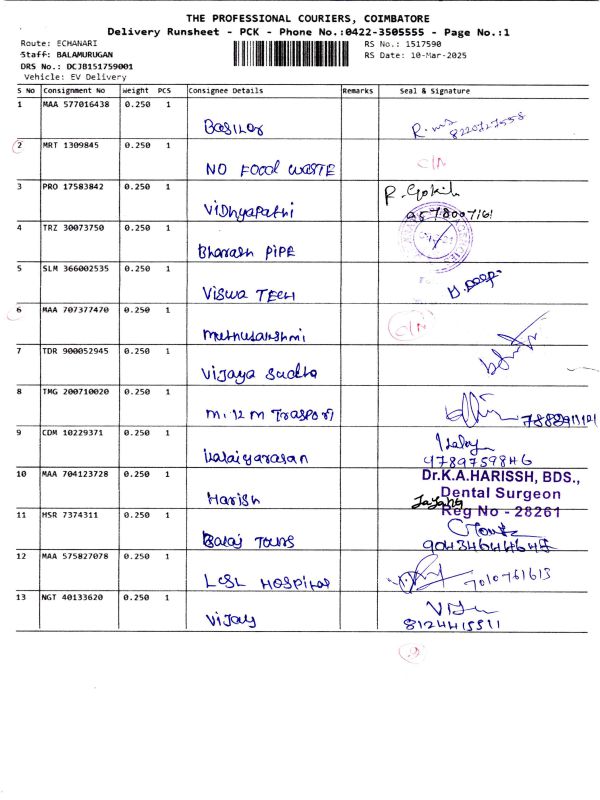 THE PROFESSIONAL COURIERS, COIMBATORE
Delivery Runsheet - PCK - Phone No.:0422-3505555 - Page No.:1
Route: ECHANARI RS No.: 1517590
Staff: BALAMURUGAN RS Date: 10-Mar-2025
DRS No.: DCJB151759001
Vehicle: EV Delivery
S No Consignment No Weight PCS Consignee Details Remarks Seal & Signature
1 MAA 577016438 0.250 1
8220727558
2 MRT 1309845 0.250 1
NO FOOD WASTE
3 PRO 17583842 0.250 1
Vidhyapathi 9578007161
4 TRZ 30073750 0.250 1
Bharath PIPE
5 SLM 366002535 0.250 1
VISWA TECH
6 MAA 707377470 0.250 1
7 TDR 900052945 0.250 1
Vijaya Sudha
8 TMG 200710020 0.250 1
9 CDM 10229371 0.250 1
Kalaiyarasan
10 MAA 704123728 0.250 1 Dr.K.A.HARISSH, BDS.,
Dental Surgeon
Harish
Reg No - 28261
11 HSR 7374311 0.250 1
Balaj TOURS
12 MAA 575827078 0.250 1
HOSPital 7010761613
13 NGT 40133620 0.250 1
Vijay
8124415511